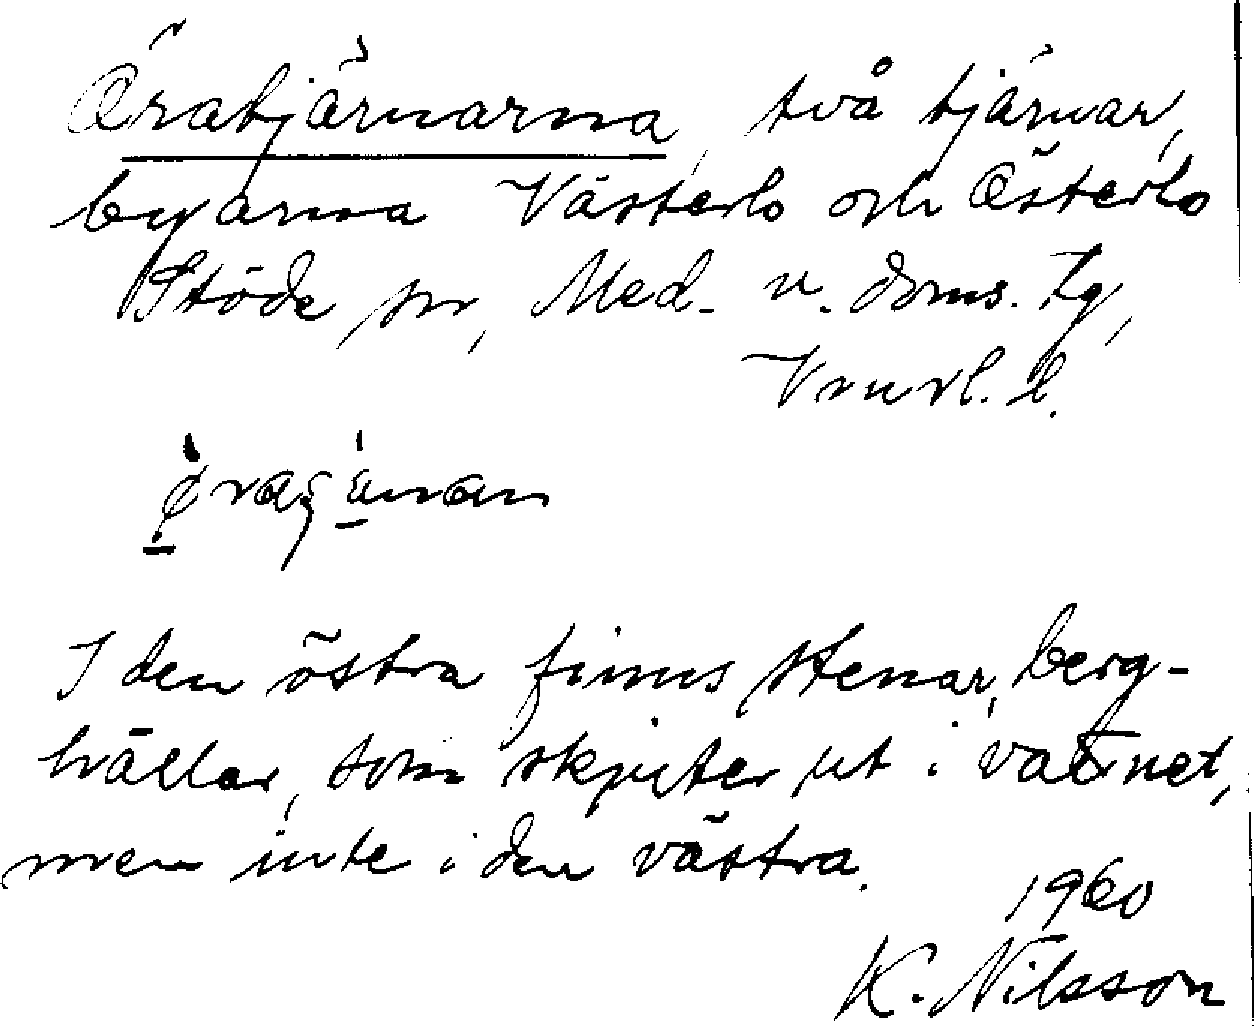 Öratjärnarna, två tjärnar,
byarna Västerlo och Österlo
Stöde sn, Med. v. doms. tg,
Vrnrl. l.
I den östra finns stenar, berg-
hällar, som skjuter ut i vattnet,
men inte i den västra.
1960
K. Nilsson